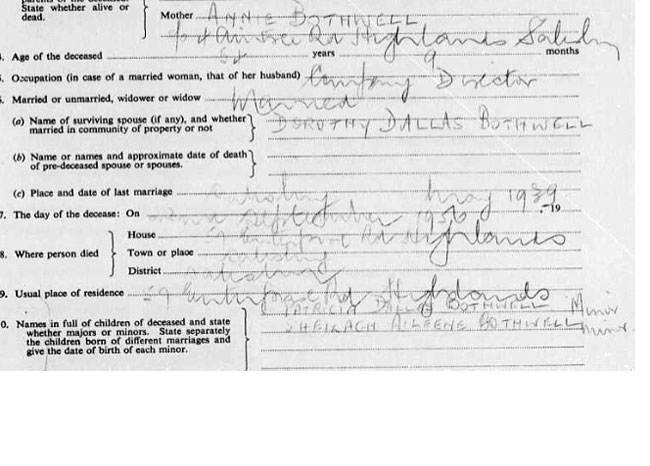 State whether alive or
dead.
Mother ANNIE BOTHWELL
Rd Highlands
. Age of the deceased years 9 months
. Occupation (in case of a married woman, that of her husband) Company Director
. Married or unmarried, widower or widow Married
(a) Name of surviving spouse (if any), and whether
married in community of property or not
DOROTHY DALLAS BOTHWELL
(b) Name or names and approximate date of death
of pre-deceased spouse or spouses.
(c) Place and date of last marriage May 1939
7. The day of the decease: On September 1956 19
8. Where person died
House Rd Highlands
Town or place
District
9. Usual place of residence 59 Rd Highlands
0. Names in full of children of deceased and state
whether majors or minors. State separately
the children born of different marriages and
give the date of birth of each minor.
PATRICIA DALLAS BOTHWELL Minor
SHEILAGH AILEENE BOTHWELL minor.